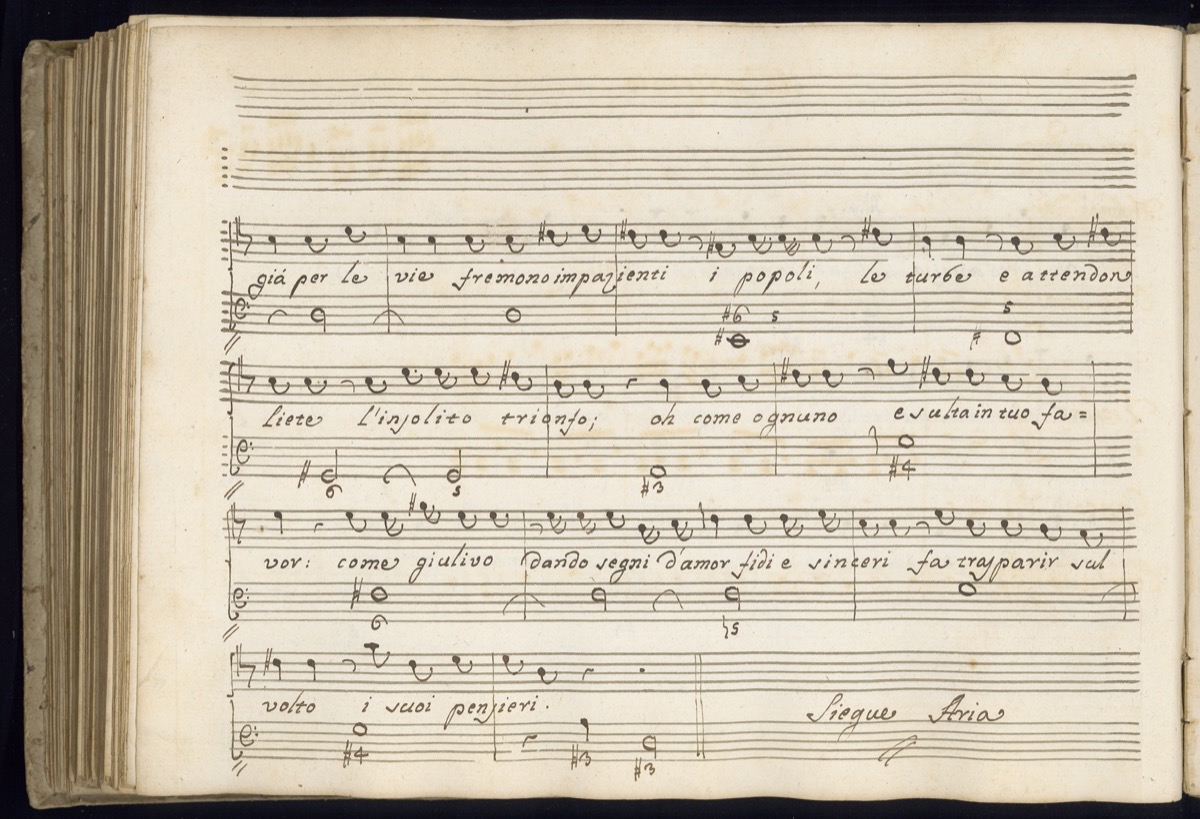 già per le vie fremono impazienti i popoli, le turbe e attendon
#6 5 5
liete l'insolito trionfo; oh come ognuno esulta in tuo fa=
6 5 #3 #4
vor: come giulivo dando segni d'amor fidi e sinceri fa trasparir sul
6 ♮5
volto i suoi pensieri. Siegue Aria
#4 #3 #3